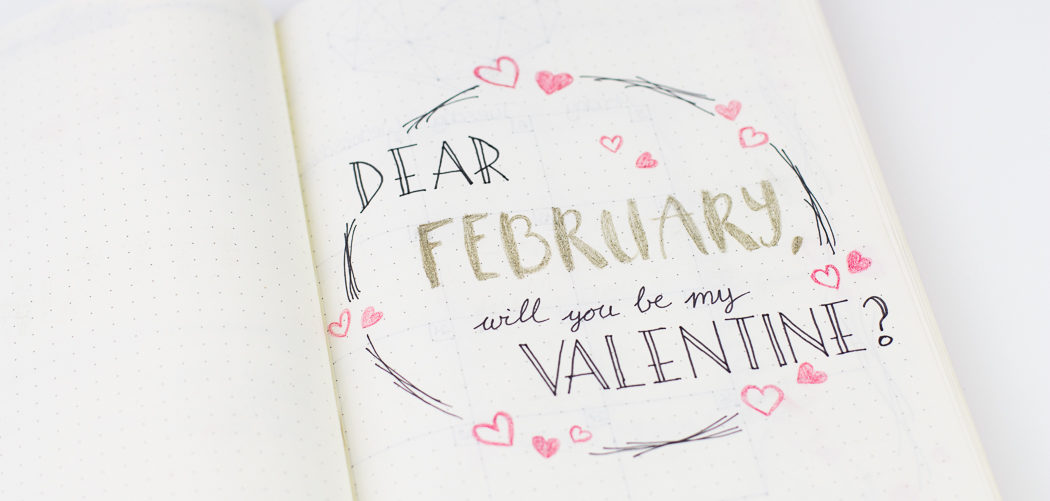 DEAR
FEBRUARY,
will you be my
VALENTINE?